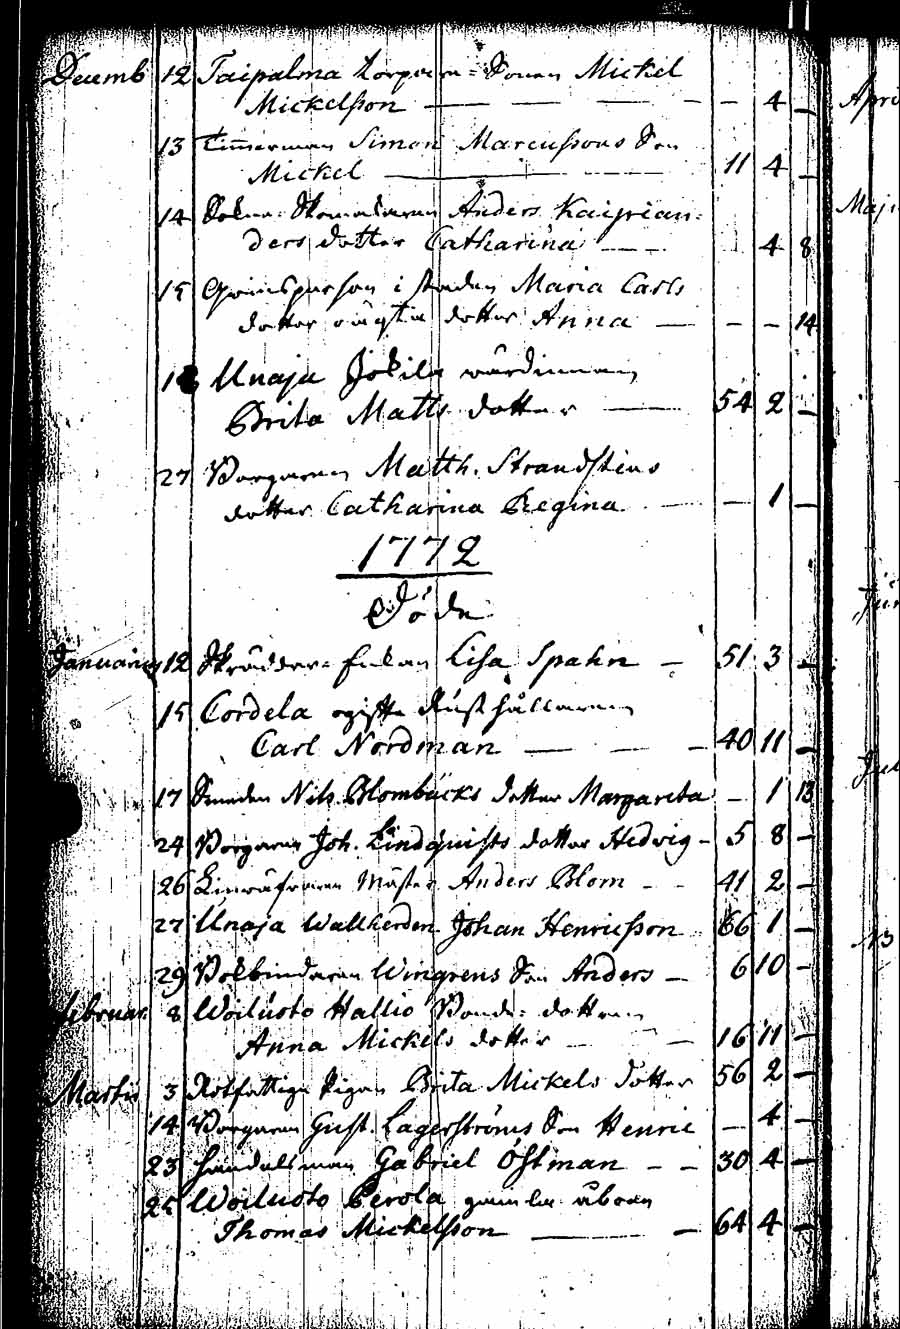 Decemb 12 Taipalma Torpare-Sonen Mickel
Mickelsson — — — — 4 —
13 Timmerman Simon Marcussons Son
Mickel — — 11 4 —
14 Anders Kaiprian-
ders dotter Catharina — — 4 8
15 i staden Maria Carls
dotter oägta dotter Anna — — — 14
Unaja Jokila wärdinnan
Brita Matts dotter — 54 2 —
27 Borgaren Matth. Strandstens
dotter Catharina Regina — — 1 —
1772
Döde
Januarius 12 Skräddar-Enkan Lisa Spahn — 51 3 —
15 Cordela ogifte Rusthållaren
Carl Nordman — — — 40 11 —
17 Smeden Nils Blombäcks dotter Margareta — 1 13
24 Borgaren Joh. Lindquists dotter Hedvig — 5 8 —
26 Linwäfvaren Mäster Anders Blom — — 41 2 —
27 Unaja Wallherden Johan Henricsson 66 1 —
29 Bokbindaren Wingrens Son Anders — 6 10 —
Februar. 8 Woiluoto Hallio Bonde-dottren
Anna Mickels dotter — — 16 11 —
Martii 3 Rotfattige Pigan Brita Mickels dotter 56 2 —
14 Borgaren Gust. Lagerströms Son Henric — 4 —
23 Handelsman Gabriel Östman — — 30 4 —
25 Woiluoto Perola gamle åboen
Thomas Mickelsson — — 64 4 —